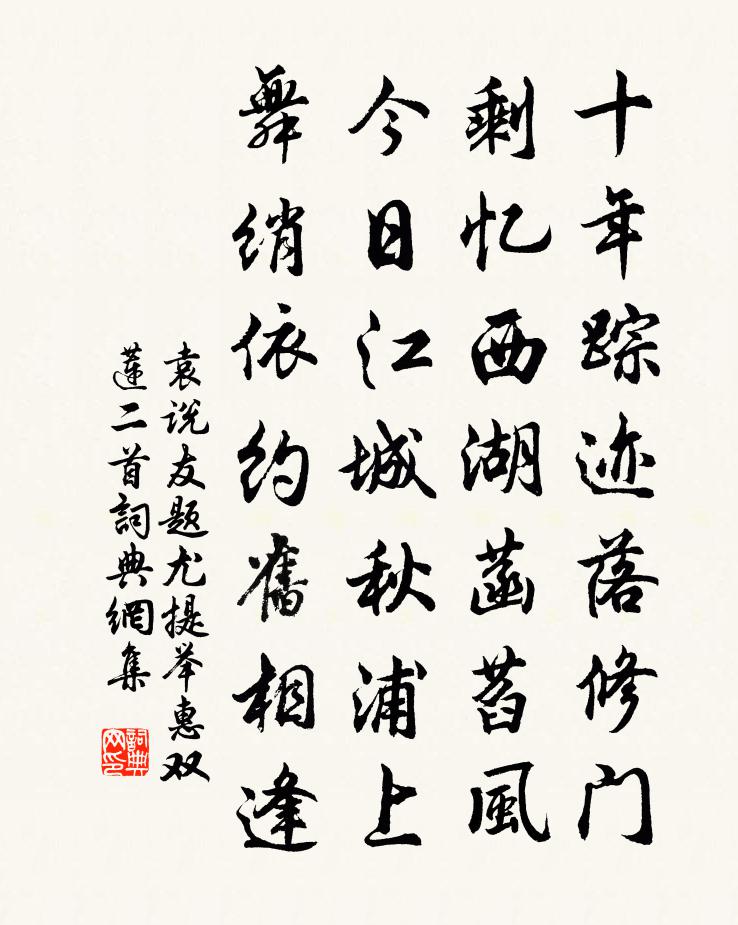 十年踪迹落修门
剩忆西湖菡萏风
今日江城秋浦上
舞绡依约舊相逢
袁说友题尤提举惠双
莲二首詞典網集
詞典网印